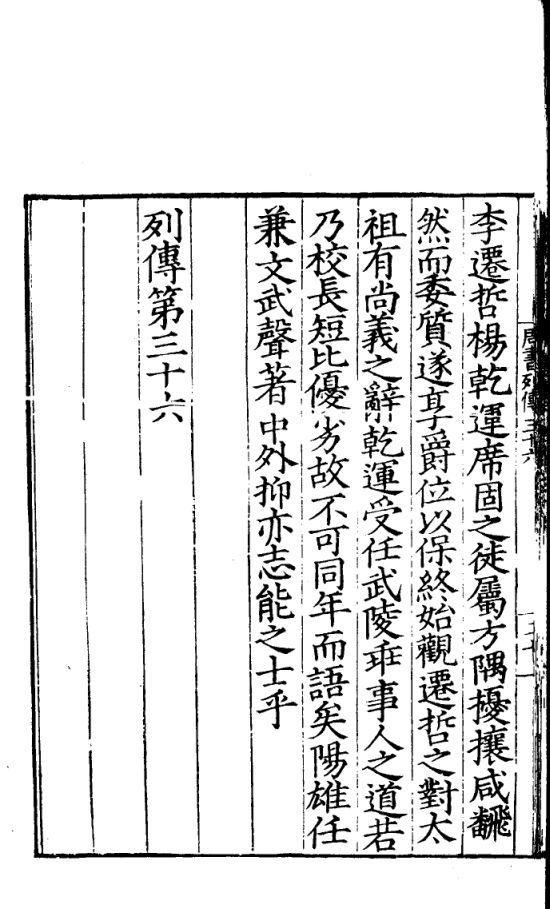 李遷哲楊乾運席固之徒屬方隅擾攘咸飜
然而委質遂享爵位以保終始觀遷哲之對太
祖有尚義之辭乾運受任武陵乖事人之道若
乃校長短比優劣故不可同年而語矣陽雄任
兼文武聲著中外抑亦志能之士乎
列傳第三十六